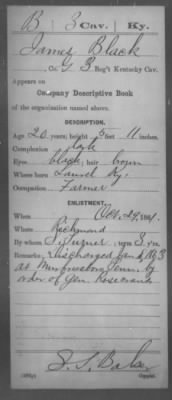 B | 3 Cav. | Ky.
James Black
, Co. G 3 Reg't Kentucky Cav.
Appears on
Company Descriptive Book
of the organization named above.
DESCRIPTION.
Age 20 years; height 5 feet 11 inches.
Complexion dark
Eyes black; hair
Where born Laurel Ky.
Occupation Farmer
ENLISTMENT.
When Oct. 29, 1861.
Where Richmond
By whom J. Turner; term 3 y'rs.
Remarks: Discharged Jan 1863
at Murfreesboro Tenn. by
order of Gen. Rosecrans
Copyist.